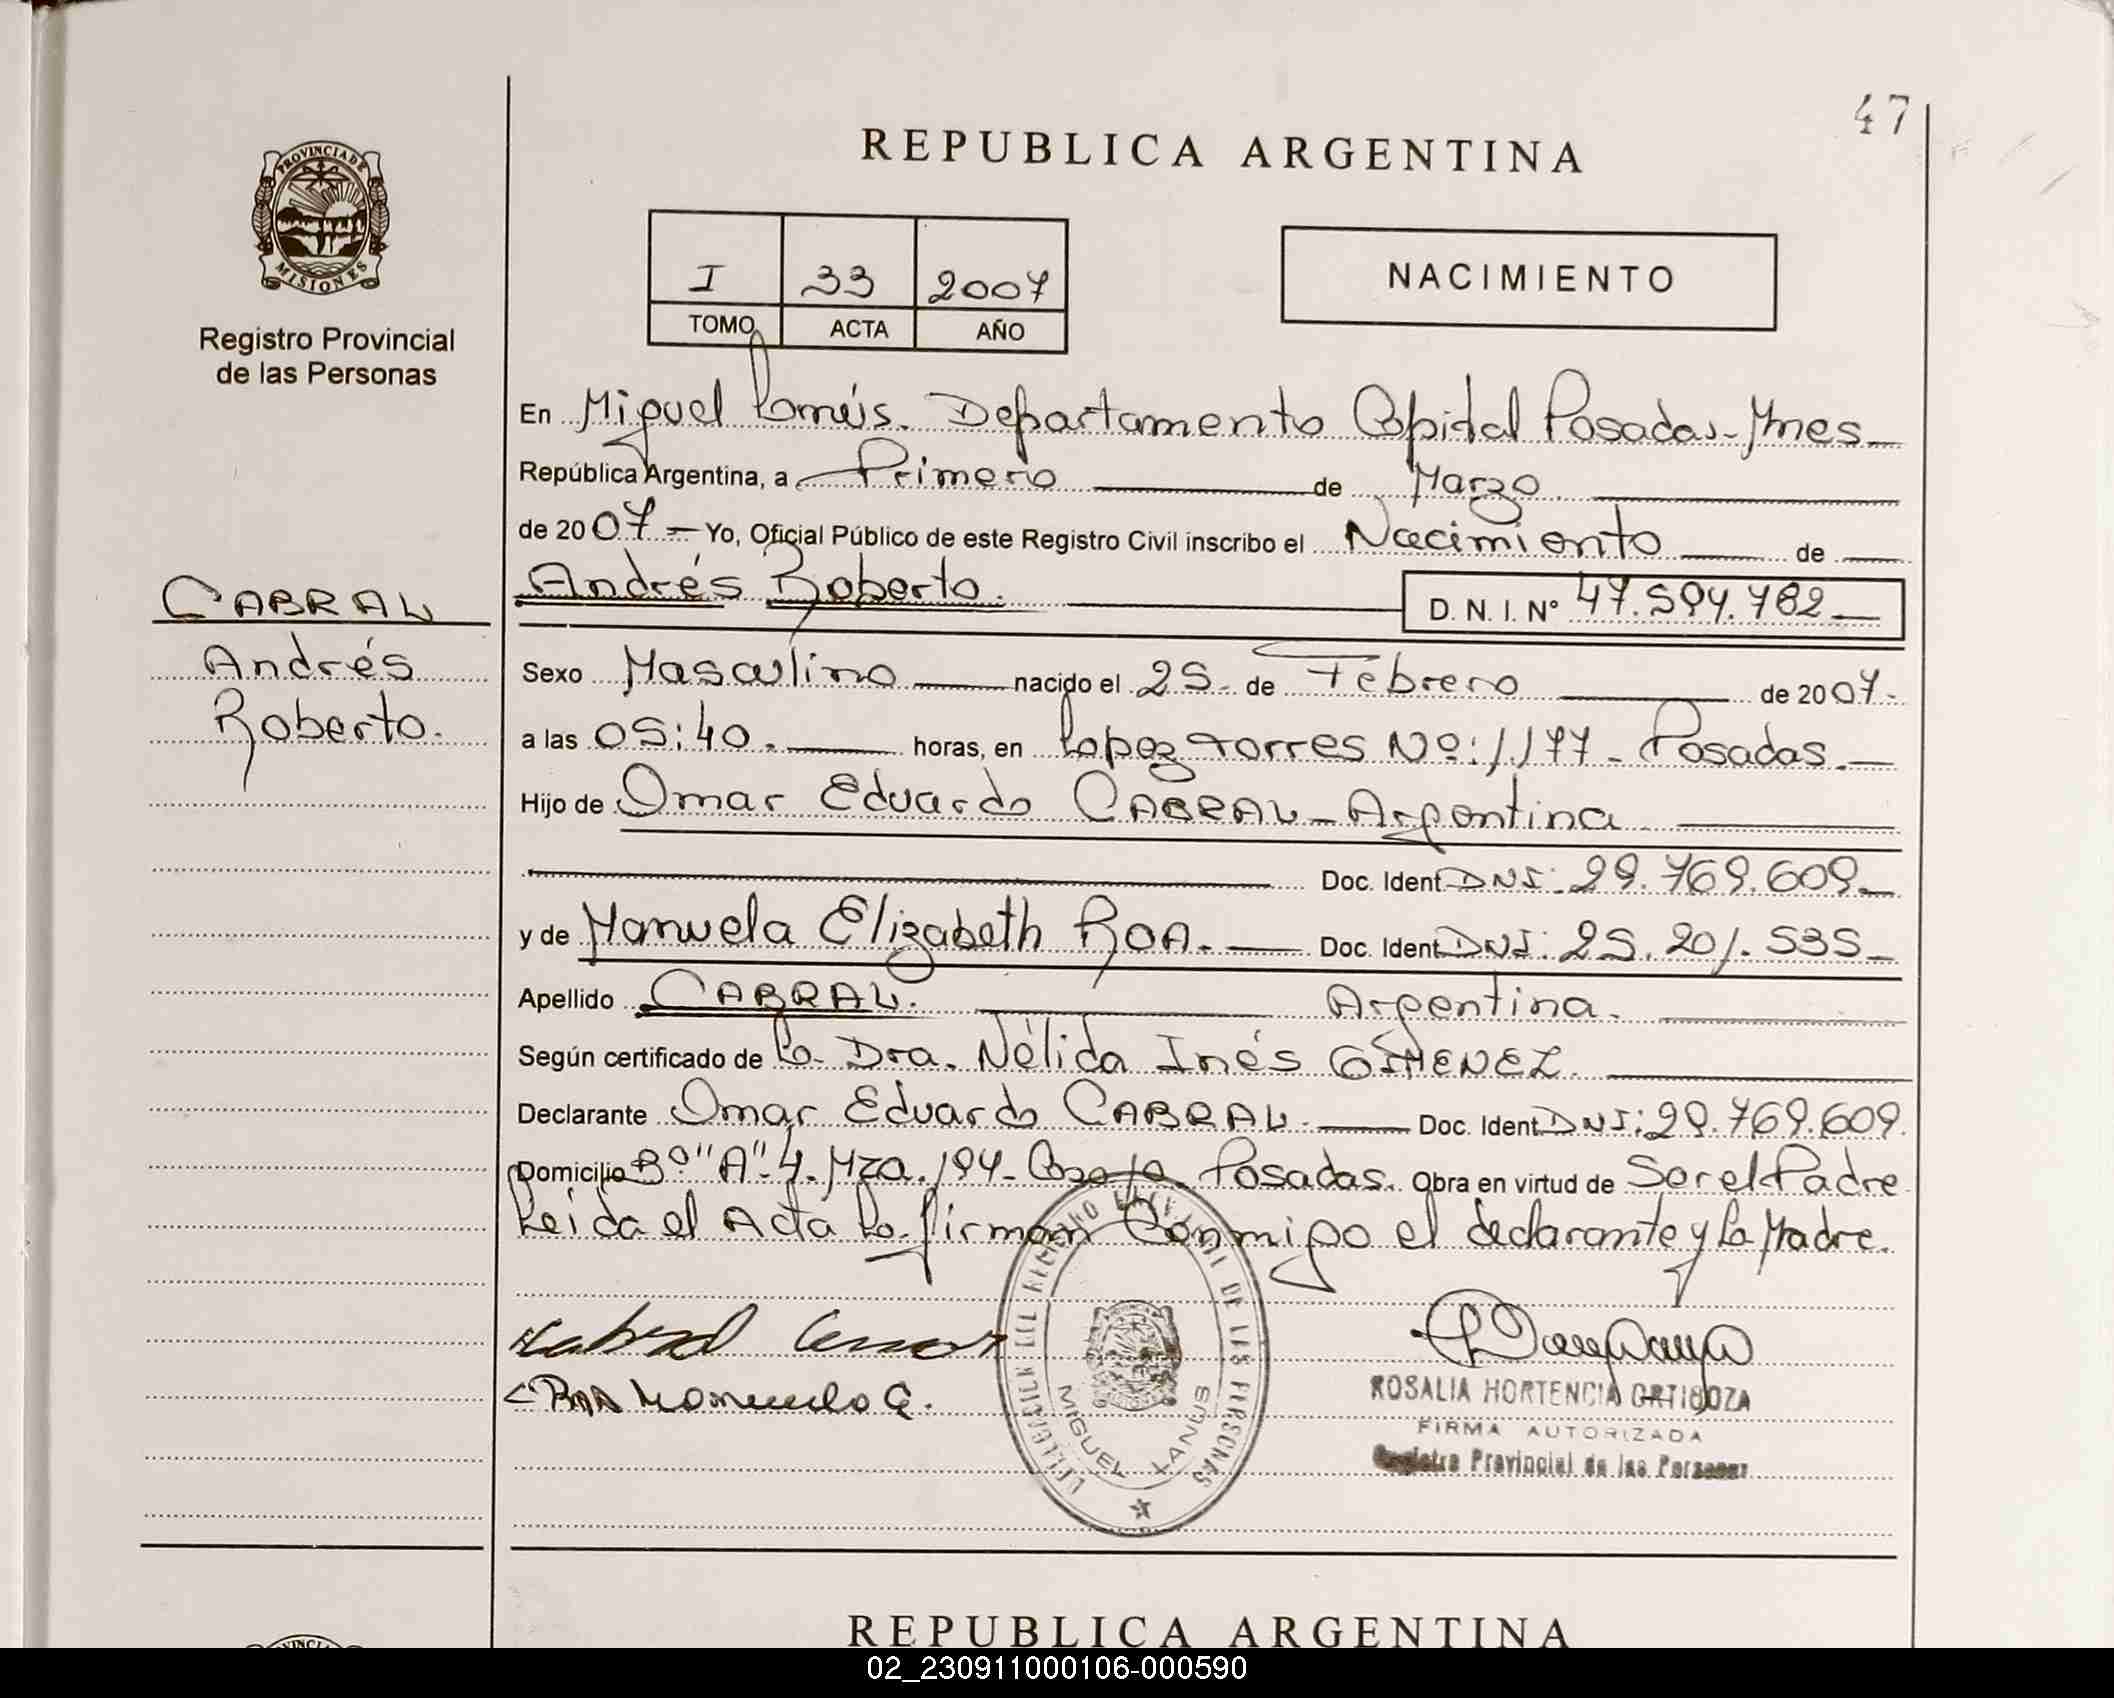 47
REPUBLICA ARGENTINA
PROVINCIA DE
MISIONES
Registro Provincial
de las Personas
I 33 2007
TOMO ACTA AÑO
NACIMIENTO
En Miguel Lanús. Departamento Capital Posadas - Mnes
República Argentina, a Primero de Marzo
de 2007 - Yo, Oficial Público de este Registro Civil inscribo el Nacimiento de
Andrés Roberto. D. N. I. Nº 47.594.782
CABRAL
Andrés
Roberto.
Sexo Masculino nacido el 25 de Febrero de 2007.
a las 05:40. horas, en Lopez Torres Nº: 1.177 - Posadas.
Hijo de Omar Eduardo CABRAL - Argentina
Doc. Ident DNI: 29.769.609
y de Manuela Elizabeth ROA. Doc. Ident DNI: 25.201.535
Apellido CABRAL. Argentina.
Según certificado de la Dra. Nélida Inés GIMENEZ.
Declarante Omar Eduardo CABRAL. Doc. Ident DNI: 29.769.609.
Domicilio Bº "A"-4. Mza. 194 - Casa Posadas. Obra en virtud de Ser el Padre
Leida el Acta la firman Conmigo el declarante y la Madre.
Cabral Omar
ROA Manuela E.
DELEGACION DEL REGISTRO PROVINCIAL DE LAS PERSONAS
MIGUEL LANUS
ROSALIA HORTENCIA ORTIGOZA
FIRMA AUTORIZADA
Registro Provincial de las Personas
REPUBLICA ARGENTINA
02_230911000106-000590